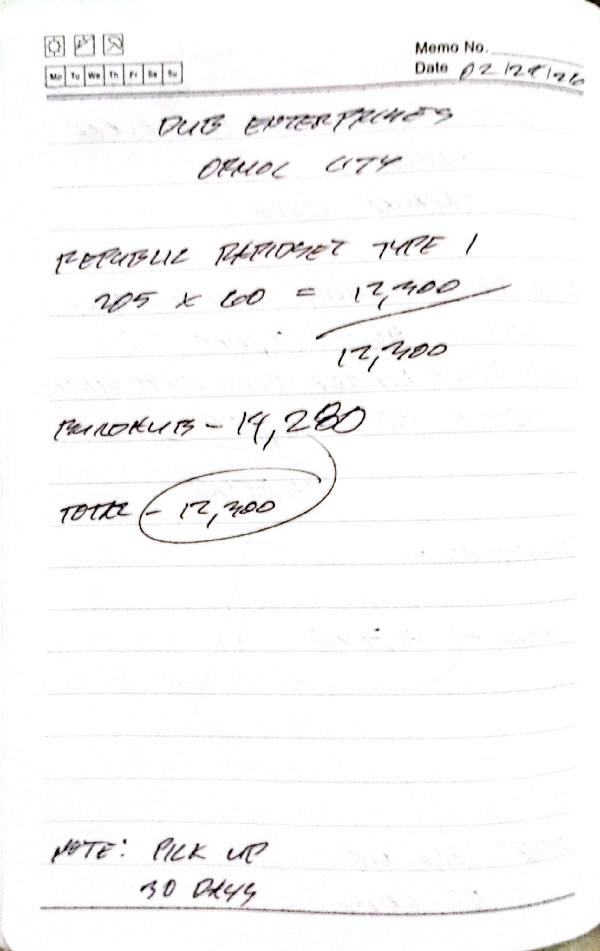 Memo No.
Mo Tu We Th Fr Sa Su
Date 02/28/26
ENTERPRISES
ORMOC CITY
REPUBLIC RAPIDSET TYPE 1
205 x 60 = 12,300
12,300
- 14,280
TOTAL - 12,300
NOTE: PICK UP
30 DAYS